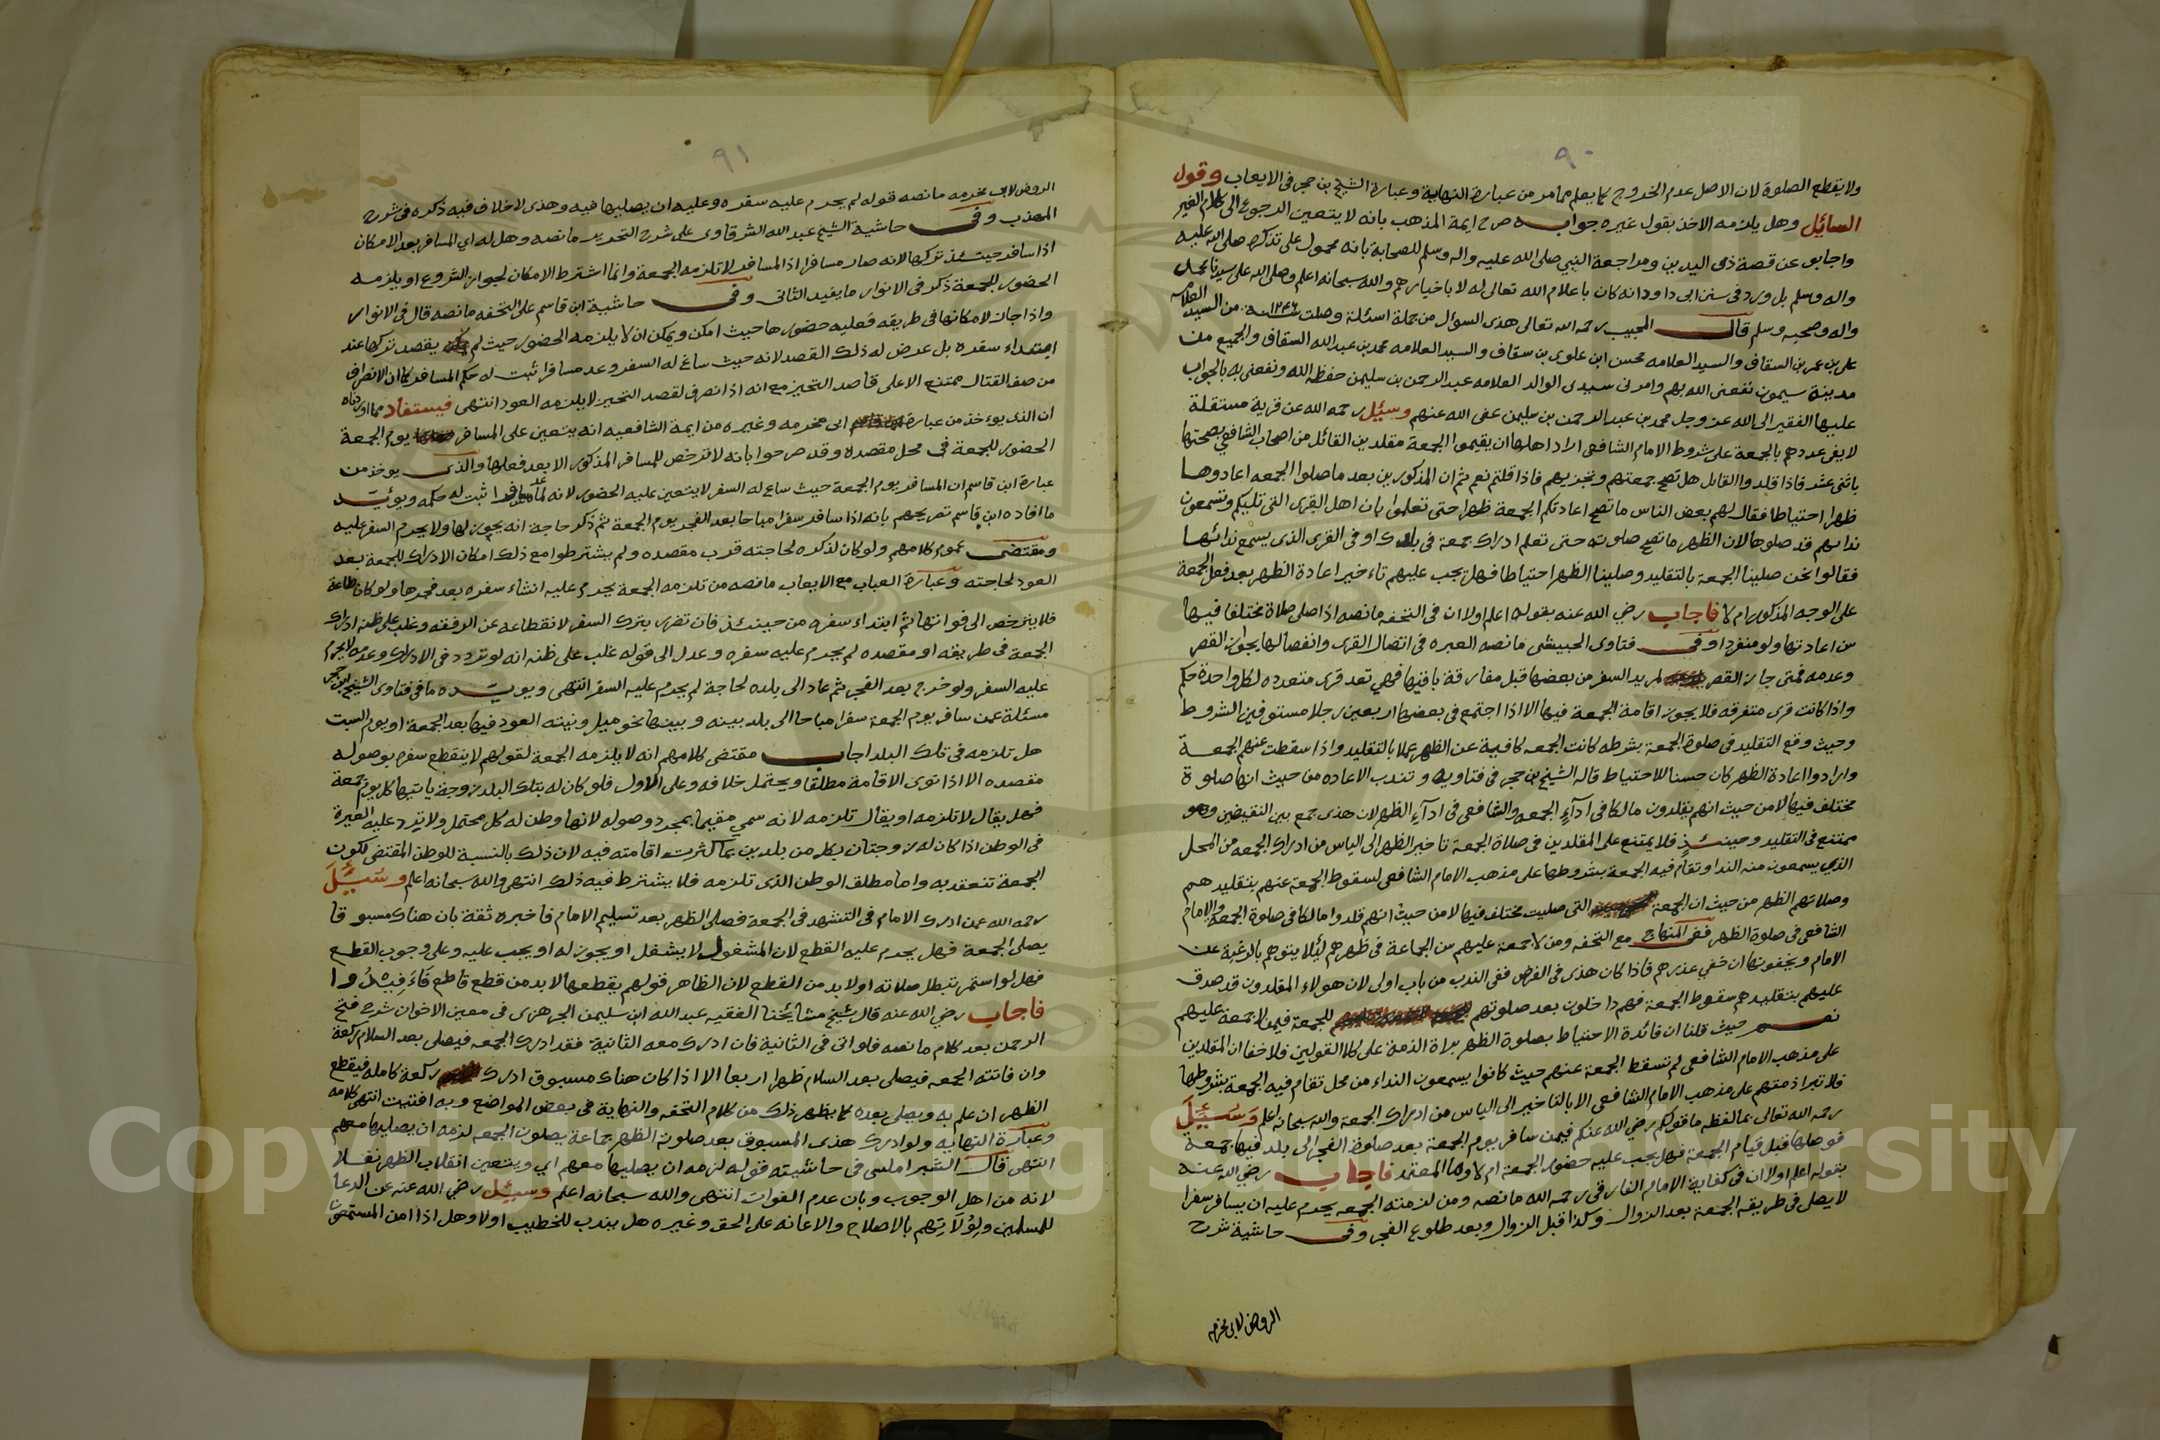 ٩٠
ولا يقطع الصلوة لان الاصل عدم الخروج كما يعلم مما مر من عبارة النهاية وعبارة الشيخ بن حجر في الايعاب وقول
السايل وهل يلزمه الاخذ بقول غيره جوابه صرح ايمة المذهب بانه لا يتعين الرجوع الى كلام الغير
واجابو عن قصة ذى اليدين ومراجعة النبي صلى الله عليه واله وسلم للصحابة بانه محمول على تذكره صلى الله عليه
واله وسلم بل ورد في سنن ابى داود انه كان باعلام الله تعالى له لا باخبارهم والله سبحانه اعلم وصلى الله على سيدنا محمد
واله وصحبه وسلم قال المجيب رحمه الله تعالى هذى السؤال من جملة اسئلة وصلت سنه من السيد العلامه
على بن عمر بن السقاف والسيد العلامه محسن ابن علوى بن سقاف والسيد العلامه محمد بن عبد الله السقاف والجميع من
مدينة سيمون نفعنى الله بهم وامرنى سيدى الوالد العلامه عبد الرحمن بن سليمن حفظه الله ونفعنى به بالجواب
عليها الفقير الى الله عز وجل محمد بن عبد الرحمن بن سليمن عفى الله عنهم وسئل رحمه الله عن قرية مستقلة
لا يفى عددهم بالجمعة على شروط الامام الشافعى اراد اهلها ان يقيموا الجمعة مقلدين القائل من اصحاب الشافعي بصحتها
باثنى عشر فاذا قلدوا القايل هل تصح جمعتهم وتجزيهم فاذا قلتم نعم ثم ان المذكورين بعد ما صلوا الجمعه اعادوها
ظهرا احتياطا فقال لهم بعض الناس ما تصح اعادتكم الجمعة ظهرا حتى تعلموا بان اهل القرى التى تليكم وتسمعون
نداىهم قد صلوها لان الظهر ما تصح صلوته حتى تعلم ادراك جمعة في بلدك او في القرى الذى يسمع ندائها
فقالوا نحن صلينا الجمعة بالتقليد وصلينا الظهر احتياطا فهل يجب عليهم تاءخير اعادة الظهر بعد فعل الجمعة
على الوجه المذكور ام لا فاجاب رضي الله عنه بقوله اعلم اولا ان في التحفه ما نصه اذا صلى صلاة مختلفا فيها
سن اعادتها ولو منفردا وفي فتاوى الحبيشى ما نصه العبره في اتصال القرى وانفصالها بجواز القصر
وعدمه فمتى جاز القصر لمريد السفر من بعضها قبل مفارقة باقيها فهي تعد قرى متعدده لكل واحدة حكم
واذا كانت قرى متفرقه فلا يجوز اقامة الجمعة فيها الا اذا اجتمع في بعضها اربعين رجلا مستوفين الشروط
وحيث وقع التقليد في صلوة الجمعة بشرطه كانت الجمعه كافية عن الظهر عملا بالتقليد واذا سقطت عنهم الجمعة
وارادوا اعادة الظهر كان حسنا للاحتياط قاله الشيخ بن حجر في فتاويه وتندب الاعاده من حيث انها صلوة
مختلف فيها لا من حيث انهم يقلدون مالكا في ادآء الجمعه والشافعى في ادآء الظهر لان هذى جمع بين النقيضين وهو
ممتنع في التقليد وحينئذ فلا يمتنع على المقلدين في صلاة الجمعة تاخير الظهر الى الياس من ادراك الجمعه من المحل
الذي يسمعون منه الندا وتقام فيه الجمعة بشروطها على مذهب الامام الشافعى لسقوط الجمعة عنهم بتقليدهم
وصلاتهم الظهر من حيث ان الجمعة التى صليت مختلف فيها لا من حيث انهم قلدوا مالكا في صلوة الجمعة والامام
الشافعى في صلوة الظهر ففى المنهاج مع التحفه ومن لا جمعة عليهم سن الجماعة في ظهرهم لئلا يتوهم بالرغبة عن
الامام ويخفونها ان خفي عذرهم فاذا كان هذى في الفرض ففى الندب من باب اولى لان هولاء المقلدون قد صدق
عليهم بتقليدهم سقوط الجمعة فهم داخلون بعد صلوتهم للجمعة فيمن لا جمعة عليهم
نعم حيث قلنا ان فائدة الاحتياط بصلوة الظهر براة الذمة على كلا القولين فلا خفا ان المقلدين
على مذهب الامام الشافعى لم تسقط الجمعة عنهم حيث كانوا يسمعون النداء من محل تقام فيه الجمعة بشروطها
فلا تبرا ذمتهم على مذهب الامام الشافعى الا بالتاخير الى الياس من ادراك الجمعة والله سبحانه اعلم وسئيل
رحمه الله تعالى بما لفظه ما قولكم رضي الله عنكم فيمن سافر يوم الجمعة بعد صلوة الفجر الى بلد فيها جمعة
فوصلها قبل قيام الجمعة فهل يجب عليه حضور الجمعة ام لا وما المعتمد فاجاب رضي الله عنه
بقوله اعلم اولا ان في كفاية الامام الفارقي رحمه الله ما نصه ومن لزمته الجمعه يحرم عليه ان يسافر سفرا
لا يصلى في طريقه الجمعة بعد الزوال وكذا قبل الزوال وبعد طلوع الفجر وفي حاشية شرح
الروض لابى مخرمه
٩١
الروض لابى مخرمه ما نصه قوله لم يحرم عليه سفره وعليه ان يصليها فيه وهذى لا خلاف فيه ذكره في شرح
المهذب وفي حاشية الشيخ عبد الله الشرقاوى على شرح التحرير ما نصه وهل له اي المسافر بعد الامكان
اذا سافر حينئذ تركها لانه صار مسافرا اذ المسافر لا تلزمه الجمعة وانما اشترط الامكان لجواز الشروع او يلزمه
الحضور للجمعة ذكر في الانوار ما يفيد الثانى وفي حاشية ابن قاسم على التحفه ما نصه قال في الانوار
واذا جاز لامكانها في طريقه فعليه حضورها حيث امكن ويمكن ان لا يلزمه الحضور حيث لم يقصد تركها عند
ابتداء سفره بل عرض له ذلك القصد لانه حيث ساغ له السفر وعد مسافرا ثبت له حكم المسافر كما ان الانصراف
من صف القتال ممتنع الا على قاصد التحيز مع انه اذا انصرف لقصد التحيز لا يلزمه العود انتهى فيستفاد مما اوردناه
ان الذى يوءخذ من عبارة ابى مخرمه وغيره من ايمة الشافعيه انه يتعين على المسافر يوم الجمعة
الحضور للجمعة في محل مقصده وقد صرحوا بانه لا ترخص للمسافر المذكور الا بعد فعلها والذى يوخذ من
عبارة ابن قاسم ان المسافر يوم الجمعة حيث ساغ له السفر لا يتعين عليه الحضور لانه لما عد مسافرا ثبت له حكمه ويوئيد
ما افاده ابن قاسم تصريحهم بانه اذا سافر سفرا مباحا بعد الفجر يوم الجمعة ثم ذكر حاجة انه يجوز لها ولا يحرم السفر عليه
ومقتضى عموم كلامهم ولو كان لذكره لحاجته قرب مقصده ولم يشترطوا مع ذلك امكان الادراك للجمعة بعد
العود لحاجته وعبارة العباب مع الايعاب ما نصه من تلزمه الجمعة يحرم عليه انشاء سفره بعد فجرها ولو كان طاعة
فلا يترخص الى فواتها ثم ابتداء سفره من حينئذ فان تضرر بترك السفر لانقطاعه عن الرفقه وغلب على ظنه ادراك
الجمعة في طريقه او مقصده لم يحرم عليه سفره وعدل الى قوله غلب على ظنه انه لو تردد في الادراك وعدمه ليحرم
عليه السفر ولو خرج بعد الفجر ثم عاد الى بلده لحاجة لم يحرم عليه السفر انتهى ويويده ما في فتاوى الشيخ ابن حجر
مسئلة عمن سافر يوم الجمعة سفرا مباحا الى بلد بينه وبينها نحو ميل ونيته العود فيها بعد الجمعة او يوم السبت
هل تلزمه في تلك البلد اجاب مقتضى كلامهم انه لا يلزمه الجمعة لقولهم لا ينقطع سفره بوصوله
مقصده الا اذا نوى الاقامة مطلقا ويحتمل خلافه وعلى الاول فلو كان له بتلك البلد زوجة ياتيها كل يوم جمعة
فهل يقال لا تلزمه او يقال تلزمه لانه سمي مقيما بمجرد وصوله لانها وطن له كل محتمل ولا يرد عليه العبرة
في الوطن اذا كان له زوجتان بكل من بلدين بما كثرت اقامته فيه لان ذلك بالنسبة للوطن المقتضى لكون
الجمعة تنعقد به واما مطلق الوطن الذى تلزمه فلا يشترط فيه ذلك انتهى والله سبحانه اعلم وسئيل
رحمه الله عمن ادرك الامام في التشهد في الجمعة فصلى الظهر بعد تسليم الامام فاخبره ثقة بان هناك مسبوقا
يصلى الجمعة فهل يحرم عليه القطع لان المشغول لا يشغل او يجوز له او يجب عليه وعلى وجوب القطع
فهل لو استمر تبطل صلاته اولا بد من القطع لان الظاهر قولهم يقطعها لا بد من قطع قاطع فاءفيدوا
فاجاب رضي الله عنه قال شيخ مشائخنا الفقيه عبد الله ابن سليمن الجرهزى في معين الاخوان شرح فتح
الرحمن بعد كلام ما نصه فلو اتى في الثانية فان ادرك معه الثانية فقد ادرك الجمعه فيصلى بعد السلام ركعة
وان فاتته الجمعه فيصلى بعد السلام ظهرا اربعا الا اذا كان هناك مسبوق ادرك ركعة كامله فيقطع
الظهر ان علم به ويصلى بعده كما يظهر ذلك من كلام التحفه والنهاية في بعض المواضع وبه افتيت انتهى كلامه
وعبارة النهايه ولو ادرك هذى المسبوق بعد صلوته الظهر جماعة يصلون الجمعه لزمه ان يصليها معهم
انتهى قال الشبراملسى في حاشيته قوله لزمه ان يصليها معهم اي ويتعين انقلاب الظهر نفلا
لانه من اهل الوجوب وبان عدم الفوات انتهى والله سبحانه اعلم وسئيل رضي الله عنه عن الدعا
للمسلمين ولولاتهم بالاصلاح والاعانه على الحق وغيره هل يندب للخطيب اولا وهل اذا امن المستمعون
Copyright © King Saud University